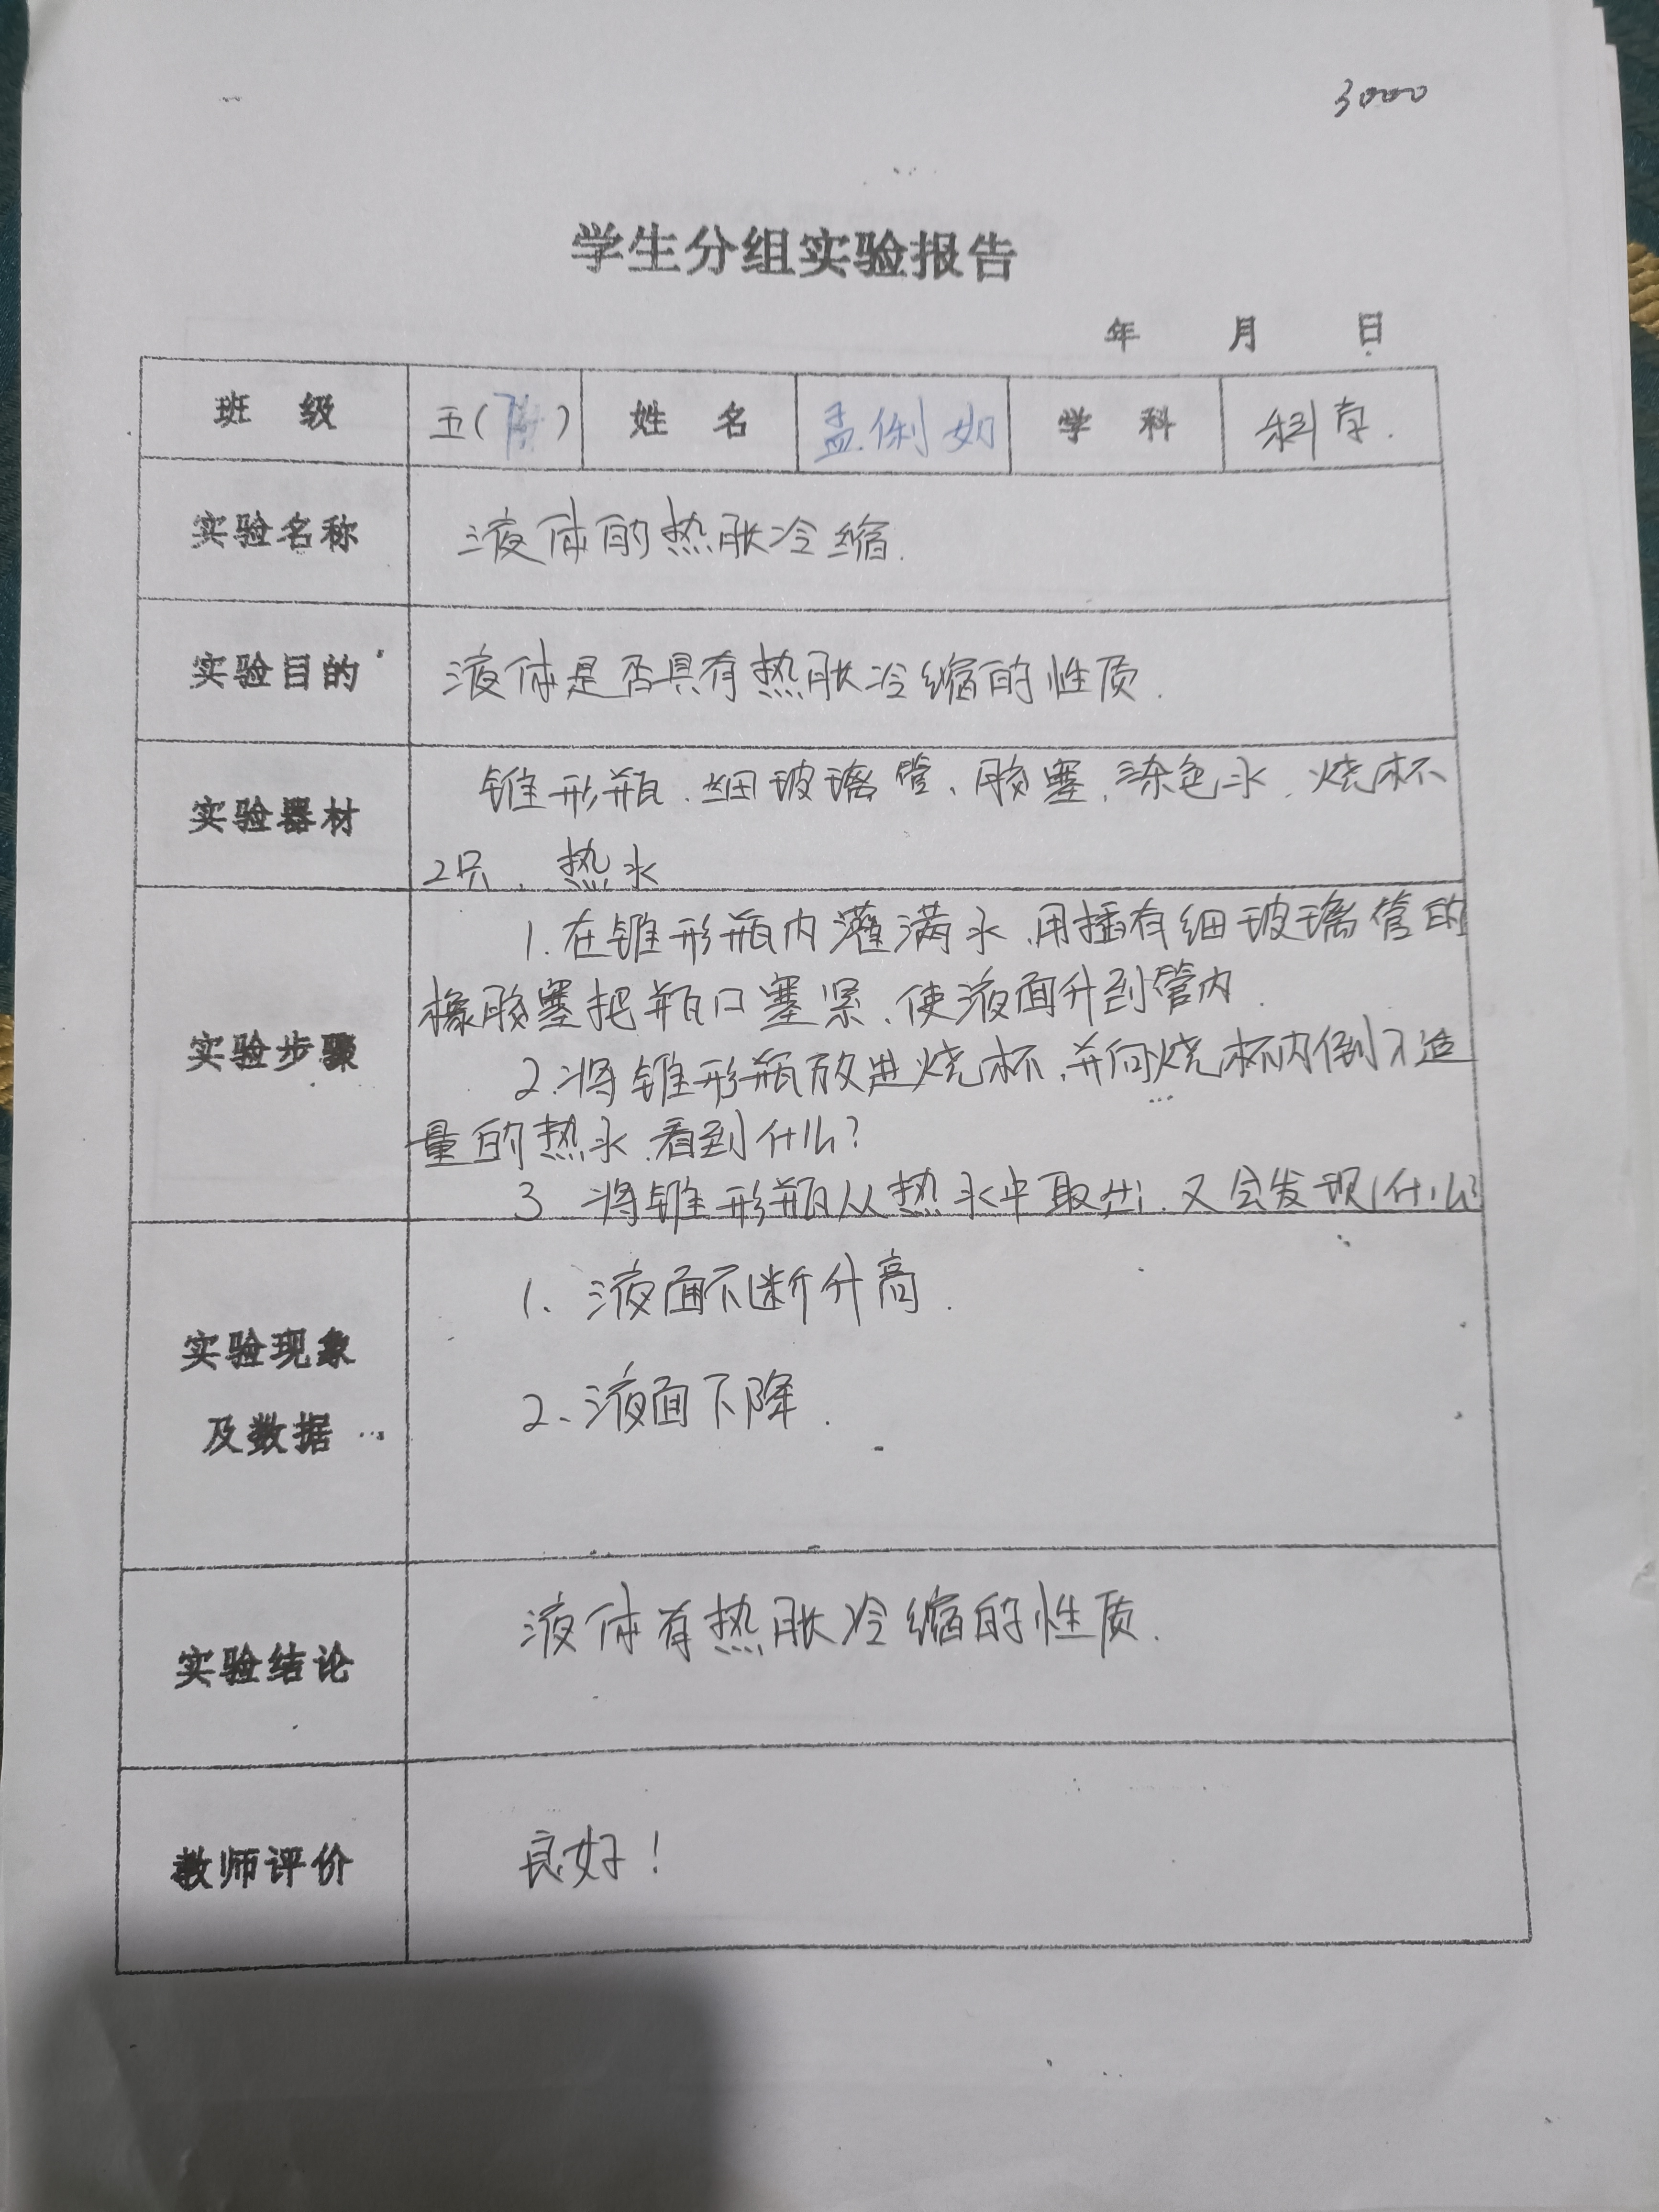 3000
学生分组实验报告
年 月 日
班 级 五( ) 姓 名 孟俐如 学 科 科学.
实验名称 液体的热胀冷缩.
实验目的 液体是否具有热胀冷缩的性质.
实验器材 锥形瓶、细玻璃管、胶塞、涂色水、烧杯
2只、热水
实验步骤
1.在锥形瓶内灌满水,用插有细玻璃管的
橡胶塞把瓶口塞紧,使液面升到管内.
2.将锥形瓶放进烧杯,并向烧杯内倒入适
量的热水,看到什么?
3 将锥形瓶从热水中取出,又会发现什么?
实验现象
及数据
1、液面不断升高.
2、液面下降.
实验结论 液体有热胀冷缩的性质.
教师评价 良好!